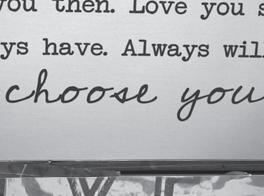 you then. Love you s
ys have. Always will
choose you